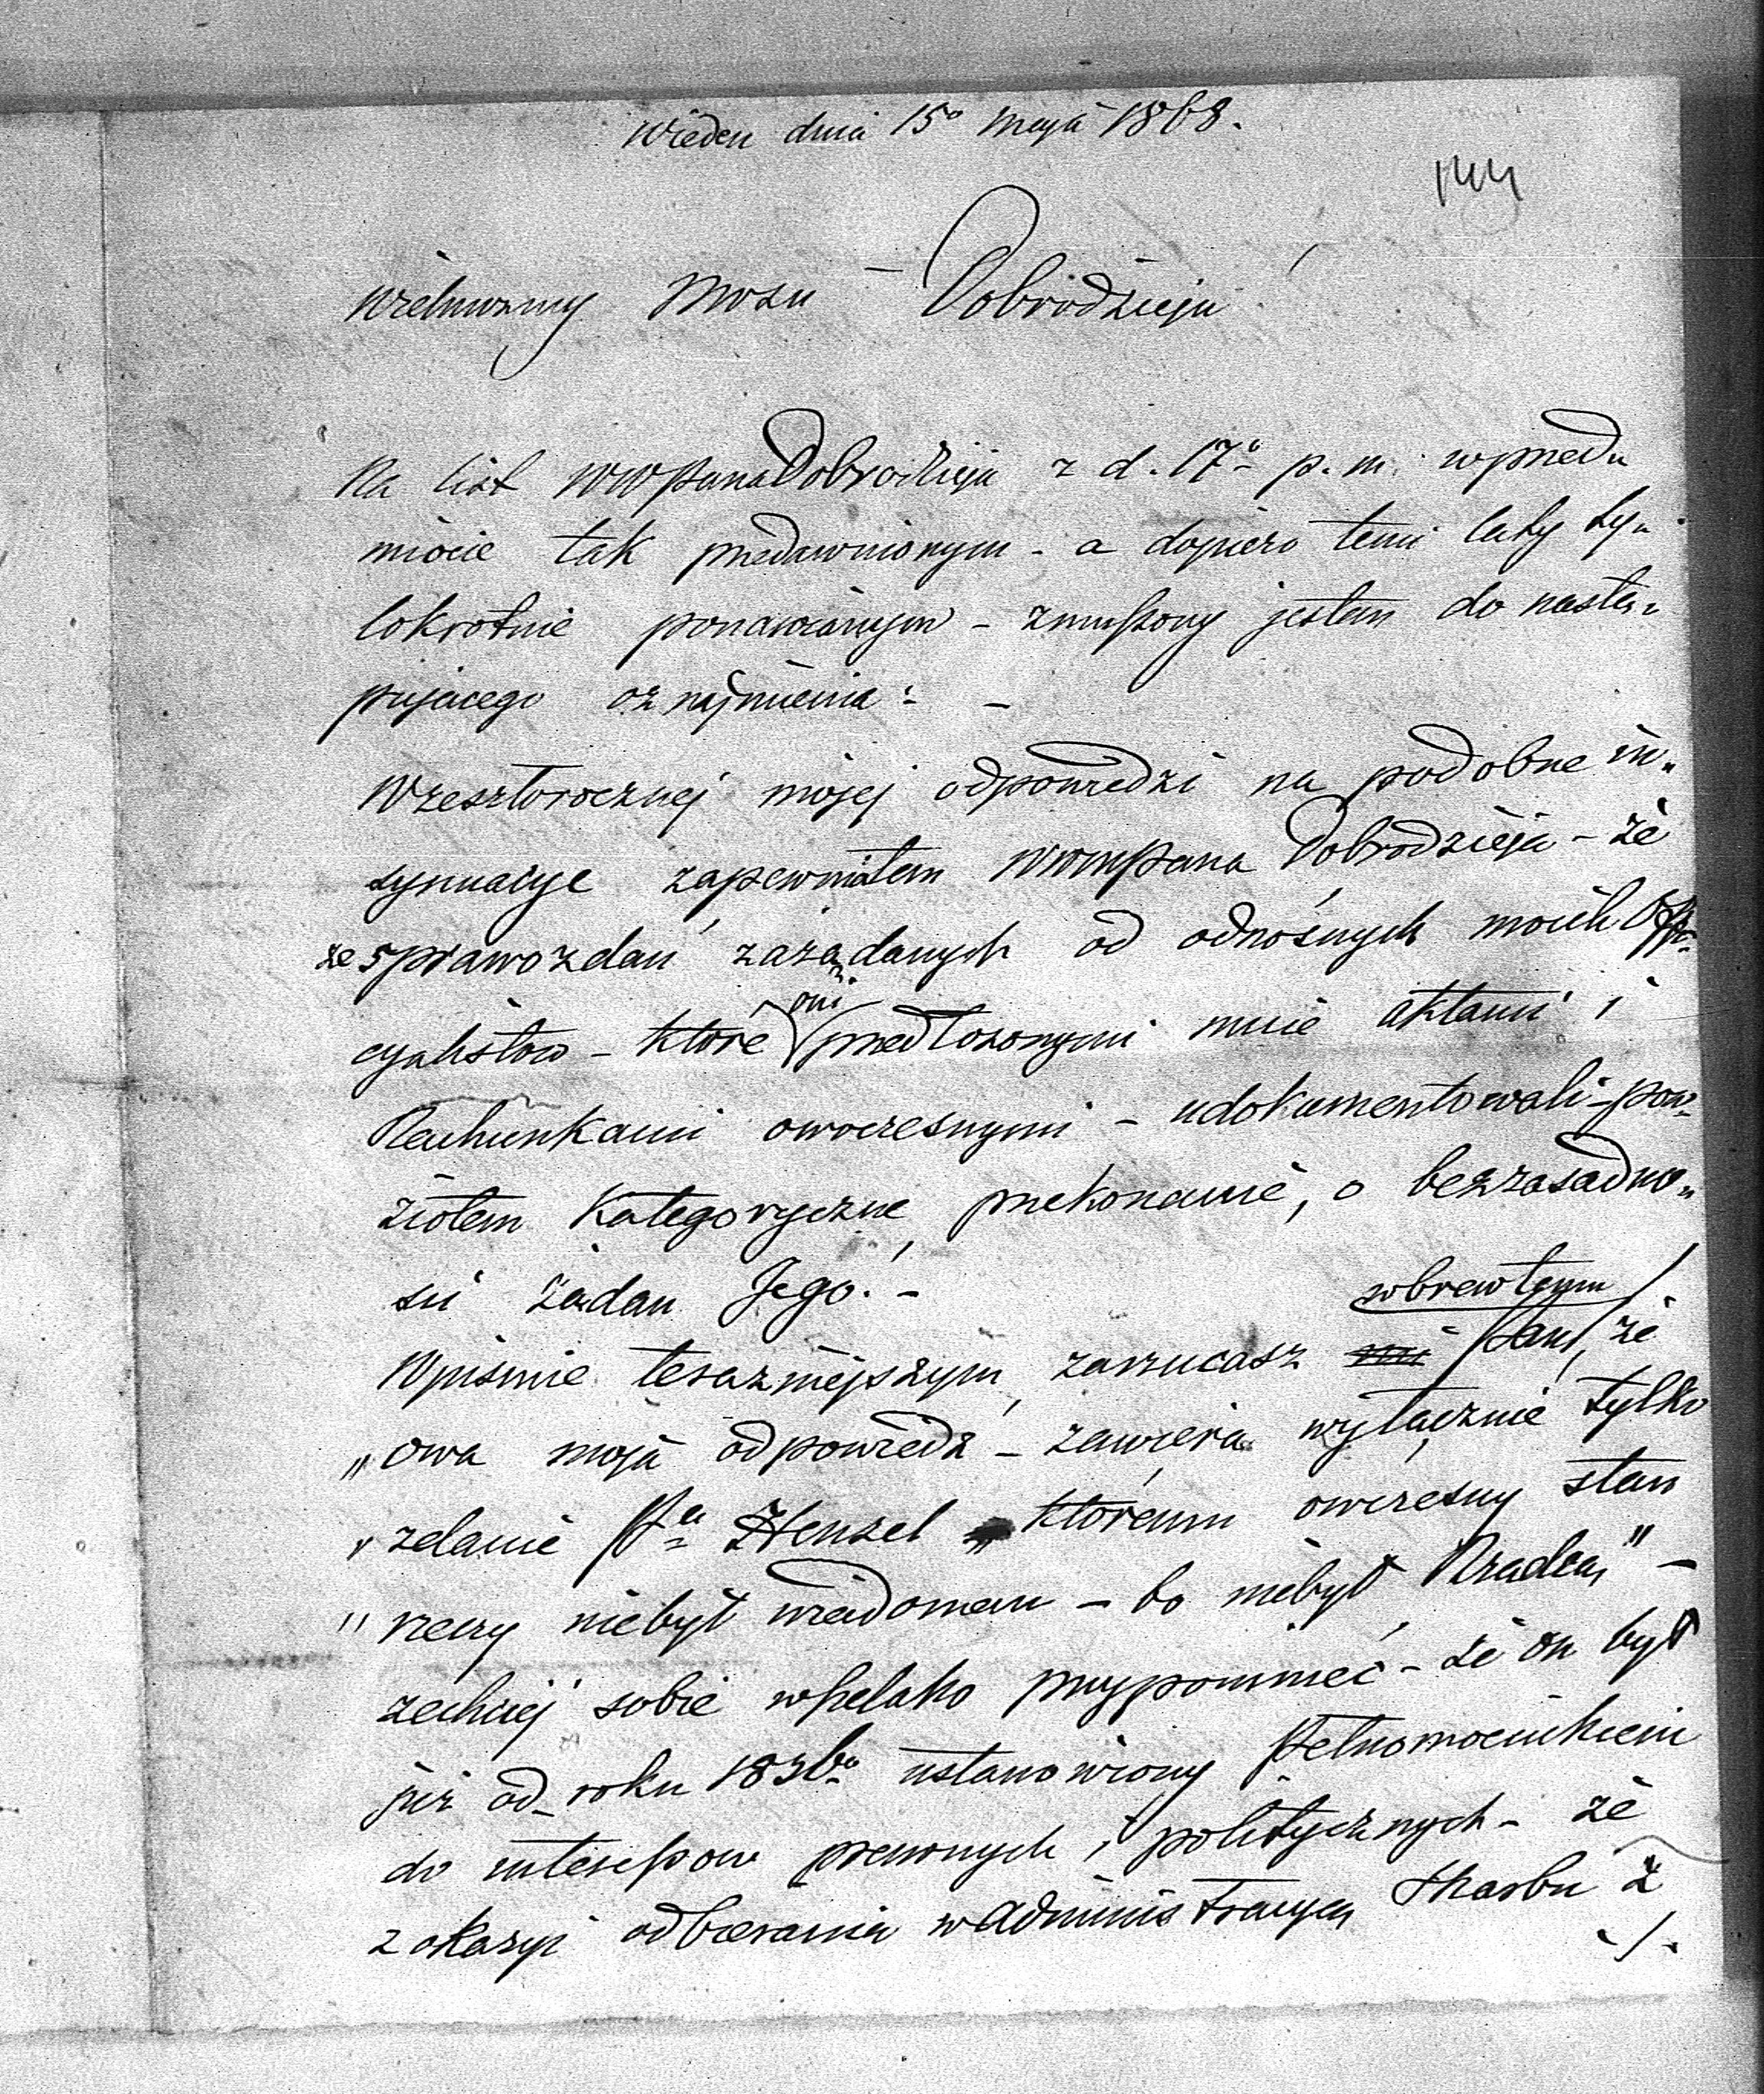 Wieden dnia 15º Maja 1868.
144
Wielmożny Mosu – Dobrodzieju!
Na list WWPana Dobrodzieja z d. 17º p. m. w przed„
miocie tak przedawnionym – a dopiero temi laty ty„
lokrotnie ponawianym – zmuszony jestem do nastę„
pującego oznajmienia: –
W zeszłorocznej mojej odpowiedzi na podobne in„
synuacye zapewniłem WWMPana Dobrodzieja – że
ze sprawozdań, zażądanych od odnośnych moich Offi„
cyalistów – które oni przedłożonymi mnie aktami i
Rachunkami owoczesnymi – udokumentowali – pow„
ziołem kategoryczne przekonanie, o bezzasadno„
ści żądan Jego. –
wbrew temu
W piśmie teraźniejszym, zarzucasz Pan, że
„owa moja odpowiedź – zawiera wyłącznie tylko
„zdanie Pa Hensel któremu owczesny stan
„rzeczy niebył wiadomem – bo niebył Rządcą" –
zechciej sobie wszelako przypomnieć – że on był
już od roku 1836º ustanowiony Pełnomocnikiem
do interessow prawnych i politycznych – że
z okazyi odbierania w Administracyą Skarbu Z
./.